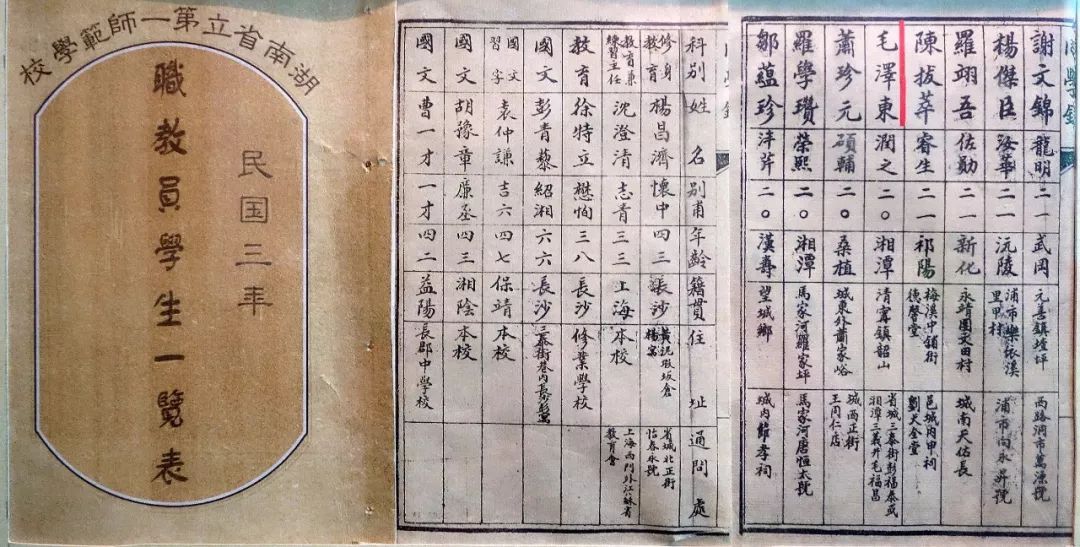 湖南省立第一師範學校
民国三年
職教員學生一覽表
科别 姓名 别甫 年龄 籍贯 住址 通問處
修身教育 楊昌濟 懷中 四三 長沙 省城北正街怡春永號
教育兼練習主任 沈澄清 志青 三三 上海 本校 上海西門外江蘇省教育會
教育 徐特立 懋恂 三八 長沙 修業學校
國文 彭青藜 紹湘 六六 長沙
國文習字 袁仲謙 吉六 四七 保靖 本校
國文 胡豫章 廉丞 四三 湘陰 本校
國文 曹一才 一才 四二 益陽 長郡中學校
謝文錦 龍明 二一 武岡 元善鎮 坪 西路洞市萬源號
楊傑臣 汝華 二一 沅陵 浦市 里甲村 浦市向永昇號
羅翊吾 佐勛 二一 新化 永靖團天田村 城南天佑長
陳拔萃 睿生 二一 祁陽 梅溪中鋪街德馨堂 邑城内甲祠劉大全堂
毛澤東 潤之 二〇 湘潭 清寗鎮韶山 省城三泰街彭福泰或湘潭三義井毛福昌
蕭珍元 碩輔 二〇 桑植 城東外蕭家峪 城西正街王同仁店
羅學瓚 榮熙 二〇 湘潭 馬家河羅家坪 馬家河唐恒太號
鄒蘊珍 泮芹 二〇 漢壽 望城鄉 城内節孝祠